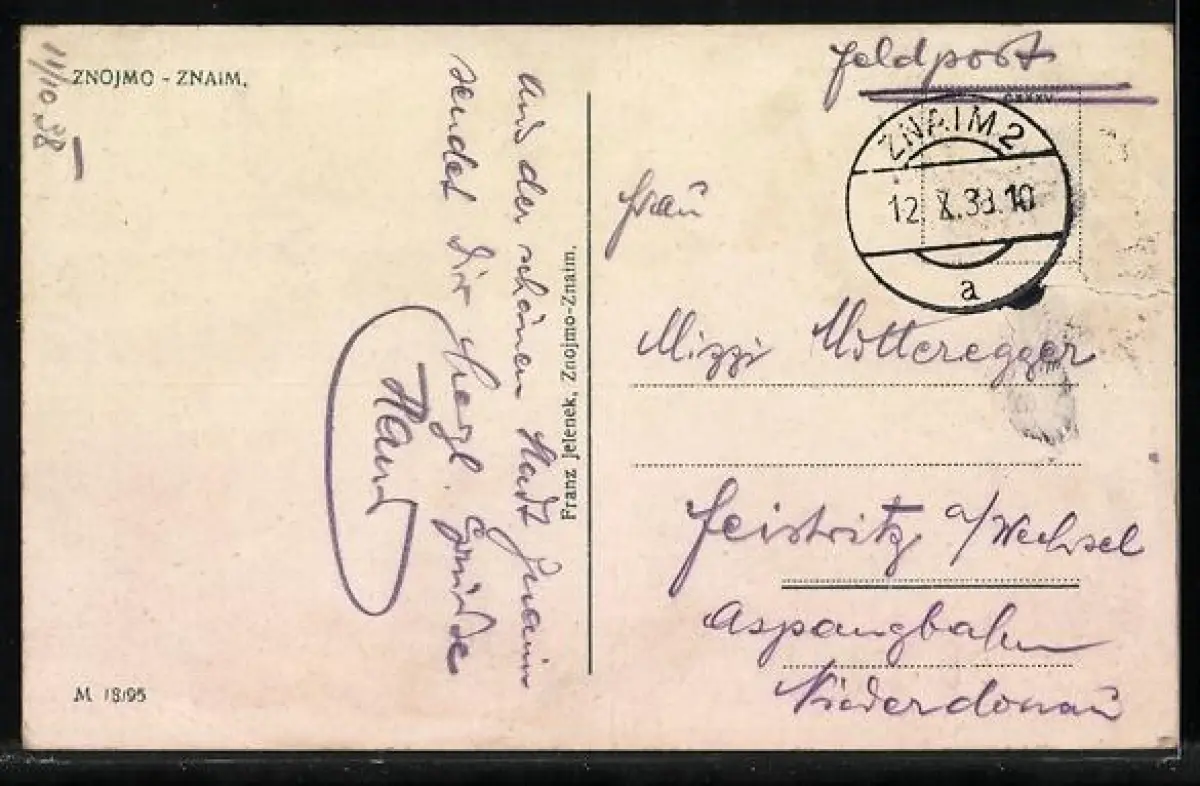 11/10 38
ZNOJMO - ZNAIM.
Aus der schönen Stadt Znaim
sendet Dir herzl. Grüsse
Hans
M 18/95
Franz Jelenek, Znojmo-Znaim.
Feldpost
ZNAIM 2
12 X. 38. 10
a
Frau
Mizzi Motteregger
Feistritz a/Wechsel
Aspangbahn
Niederdonau